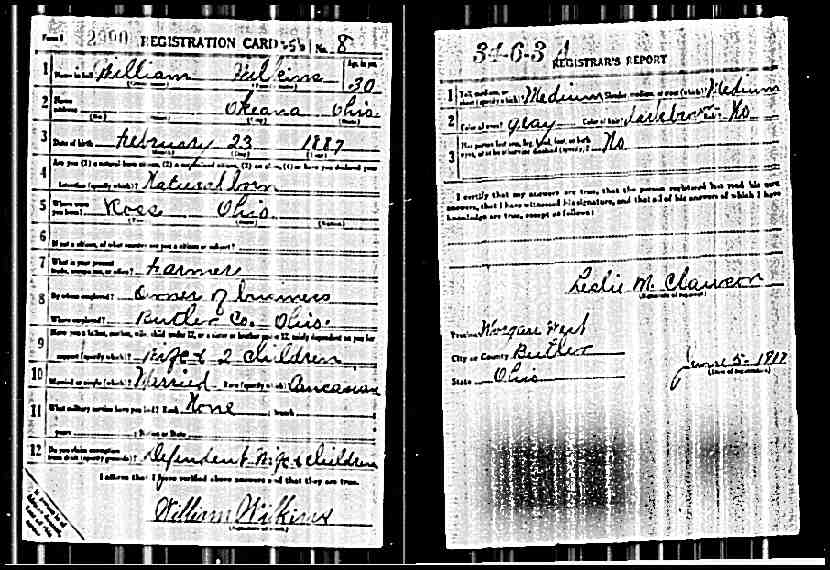 Form 1 2900 REGISTRATION CARD No. 8
1 Name in full William Wilkins Age, in yrs. 30
2 Home address Okeana Ohio
3 Date of birth February 23 1887
4 Are you (1) a natural-born citizen, (2) a naturalized citizen, (3) an alien, (4) or have you declared your
intention (specify which)? Natural born
5 Where were you born? Ross Ohio
6 If not a citizen, of what country are you a citizen or subject?
7 What is your present trade, occupation, or office? Farmer
8 By whom employed? Owner of business
Where employed? Butler Co. Ohio.
9 Have you a father, mother, wife, child under 12, or a sister or brother under 12, solely dependent on you for
support (specify which)? Wife & 2 children
10 Married or single (which)? Married Race (specify which)? Caucasian
11 What military service have you had? Rank None branch
years Nation or State
12 Do you claim exemption from draft (specify grounds)? Dependent Wife & children
I affirm that I have verified above answers and that they are true.
William Wilkins
34-6-3 A
REGISTRAR'S REPORT
1 Tall, medium, or short (specify which)? Medium Slender, medium, or stout (which)? Medium
2 Color of eyes? gray Color of hair? dark brown No
3 Has person lost arm, leg, hand, foot, or both eyes, or is he otherwise disabled (specify)? No
I certify that my answers are true, that the person registered has read his own
answers, that I have witnessed his signature, and that all of his answers of which I have
knowledge are true, except as follows:
Leslie M. Clawson
(Signature of registrar)
Precinct Morgan West
City or County Butler
State Ohio
June 5- 1917
(Date of registration)